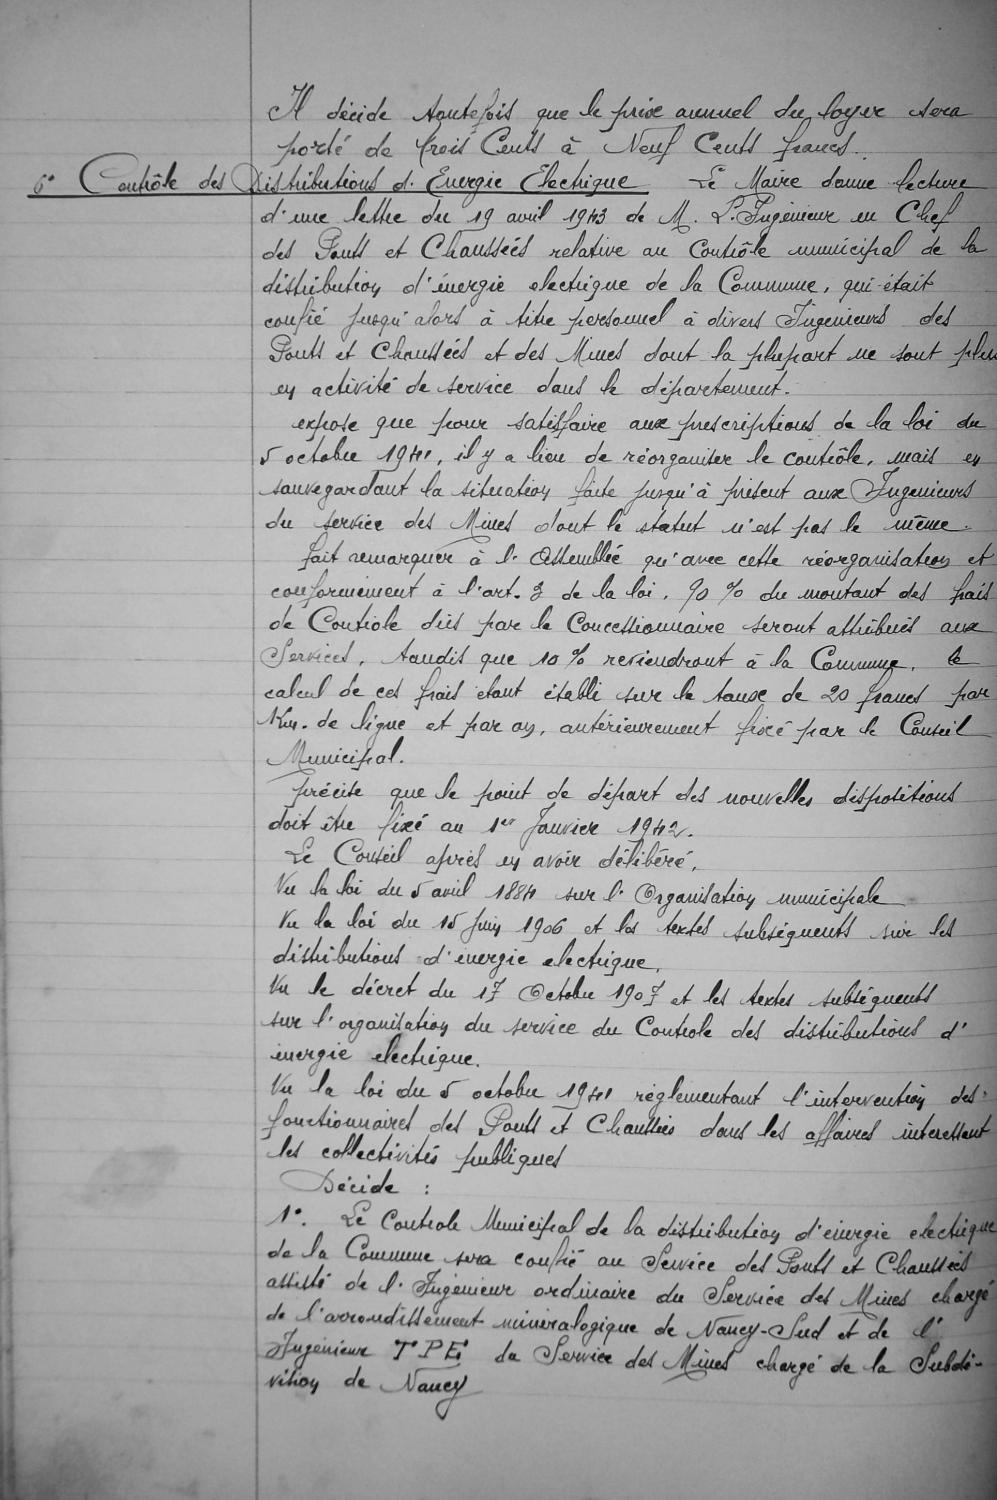 Il décide toutefois que le prix annuel du loyer sera
porté de trois Cents à Neuf Cents francs.
6° Contrôle des Distributions d'Energie Electrique Le Maire donne lecture
d'une lettre du 19 avril 1943 de M. L'Ingénieur en Chef
des Ponts et Chaussées relative au Contrôle municipal de la
distribution d'énergie electrique de la Commune, qui était
confié jusqu'alors à titre personnel à divers Ingénieurs des
Ponts et Chaussées et des Mines dont la plupart ne sont plus
en activité de service dans le département.
expose que pour satisfaire aux prescriptions de la loi du
5 octobre 1941, il y a lieu de réorganiser le contrôle, mais en
sauvegardant la situation faite jusqu'à présent aux Ingenieurs
du service des Mines dont le statut n'est pas le même.
fait remarquer à l'Assemblée qu'avec cette réorganisation et
conformément à l'art. 3 de la loi, 90 % du montant des frais
de Controle dûs par le Concessionnaire seront attribués aux
Services, tandis que 10 % reviendront à la Commune, le
calcul de ces frais etant établi sur le taux de 20 francs par
Km. de ligne et par an, antérieurement fixé par le Conseil
Municipal.
précise que le point de départ des nouvelles dispositions
doit être fixé au 1er Janvier 1942.
Le Conseil après en avoir délibéré,
Vu la loi du 5 avril 1884 sur l'Organisation municipale
Vu la loi du 15 Juin 1906 et les textes subséquents sur les
distributions d'énergie electrique,
Vu le décret du 17 Octobre 1907 et les textes subséquents
sur l'organisation du service du Controle des distributions d'
énergie electrique.
Vu la loi du 5 octobre 1941 réglementant l'intervention des
fonctionnaires des Ponts et Chaussées dans les affaires interessant
les collectivités publiques
Décide :
1°. Le Controle Municipal de la distribution d'énergie electrique
de la Commune sera confié au Service des Ponts et Chaussées
assisté de l'Ingénieur ordinaire du Service des Mines chargé
de l'arrondissement minéralogique de Nancy-Sud et de l'
Ingénieur T P E du Service des Mines chargé de la Subdi-
vision de Nancy